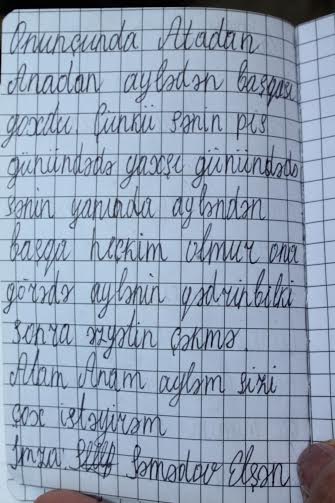 Onunçunda Atadan
Anadan aylədən başqası
yoxdu Çunkü sənin pis
günündədə yaxşı günündədə
sənin yanında ayləndən
başqa heçkim olmur ona
görədə aylənin qədrinbilki
sonra əzyətin çəkmə.
Atam Anam ayləm sizi
çox istəyirəm
İmza Səmədov Elşən